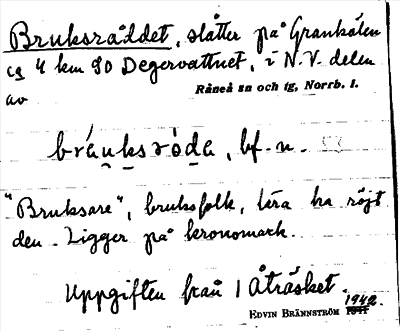 Bruksräddet, slåtter på Grankölen
ca 4 km SO Degervattnet, i N.V. delen
av
Råneå sn och tg, Norrb. l.
bráuksròda, bf. n.
"Bruksare", bruksfolk, lära ha röjt
den. Ligger på kronomark.
Uppgiften från 1 Åträsket.
1942.
EDVIN BRÄNNSTRÖM 1941